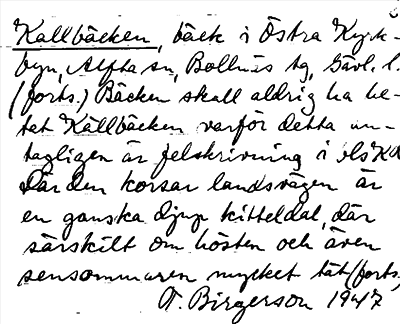 Kallbäcken, bäck i Östra Kyrk-
byn, Alfta sn, Bollnäs tg, Gävl. l.
(forts.) Bäcken skall aldrig ha he-
tat Källbäcken varför detta an-
tagligen är felskrivning i
Där den korsar landsvägen är
en ganska djup kitteldal, där
särskilt om hösten och även
sensommaren mycket tät (forts.)
A. Birgerson 1947